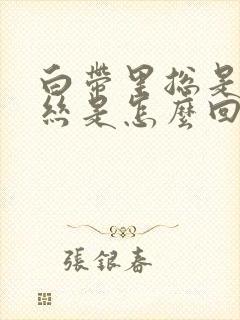 白帶里總是
絲是怎麼回
張銀春